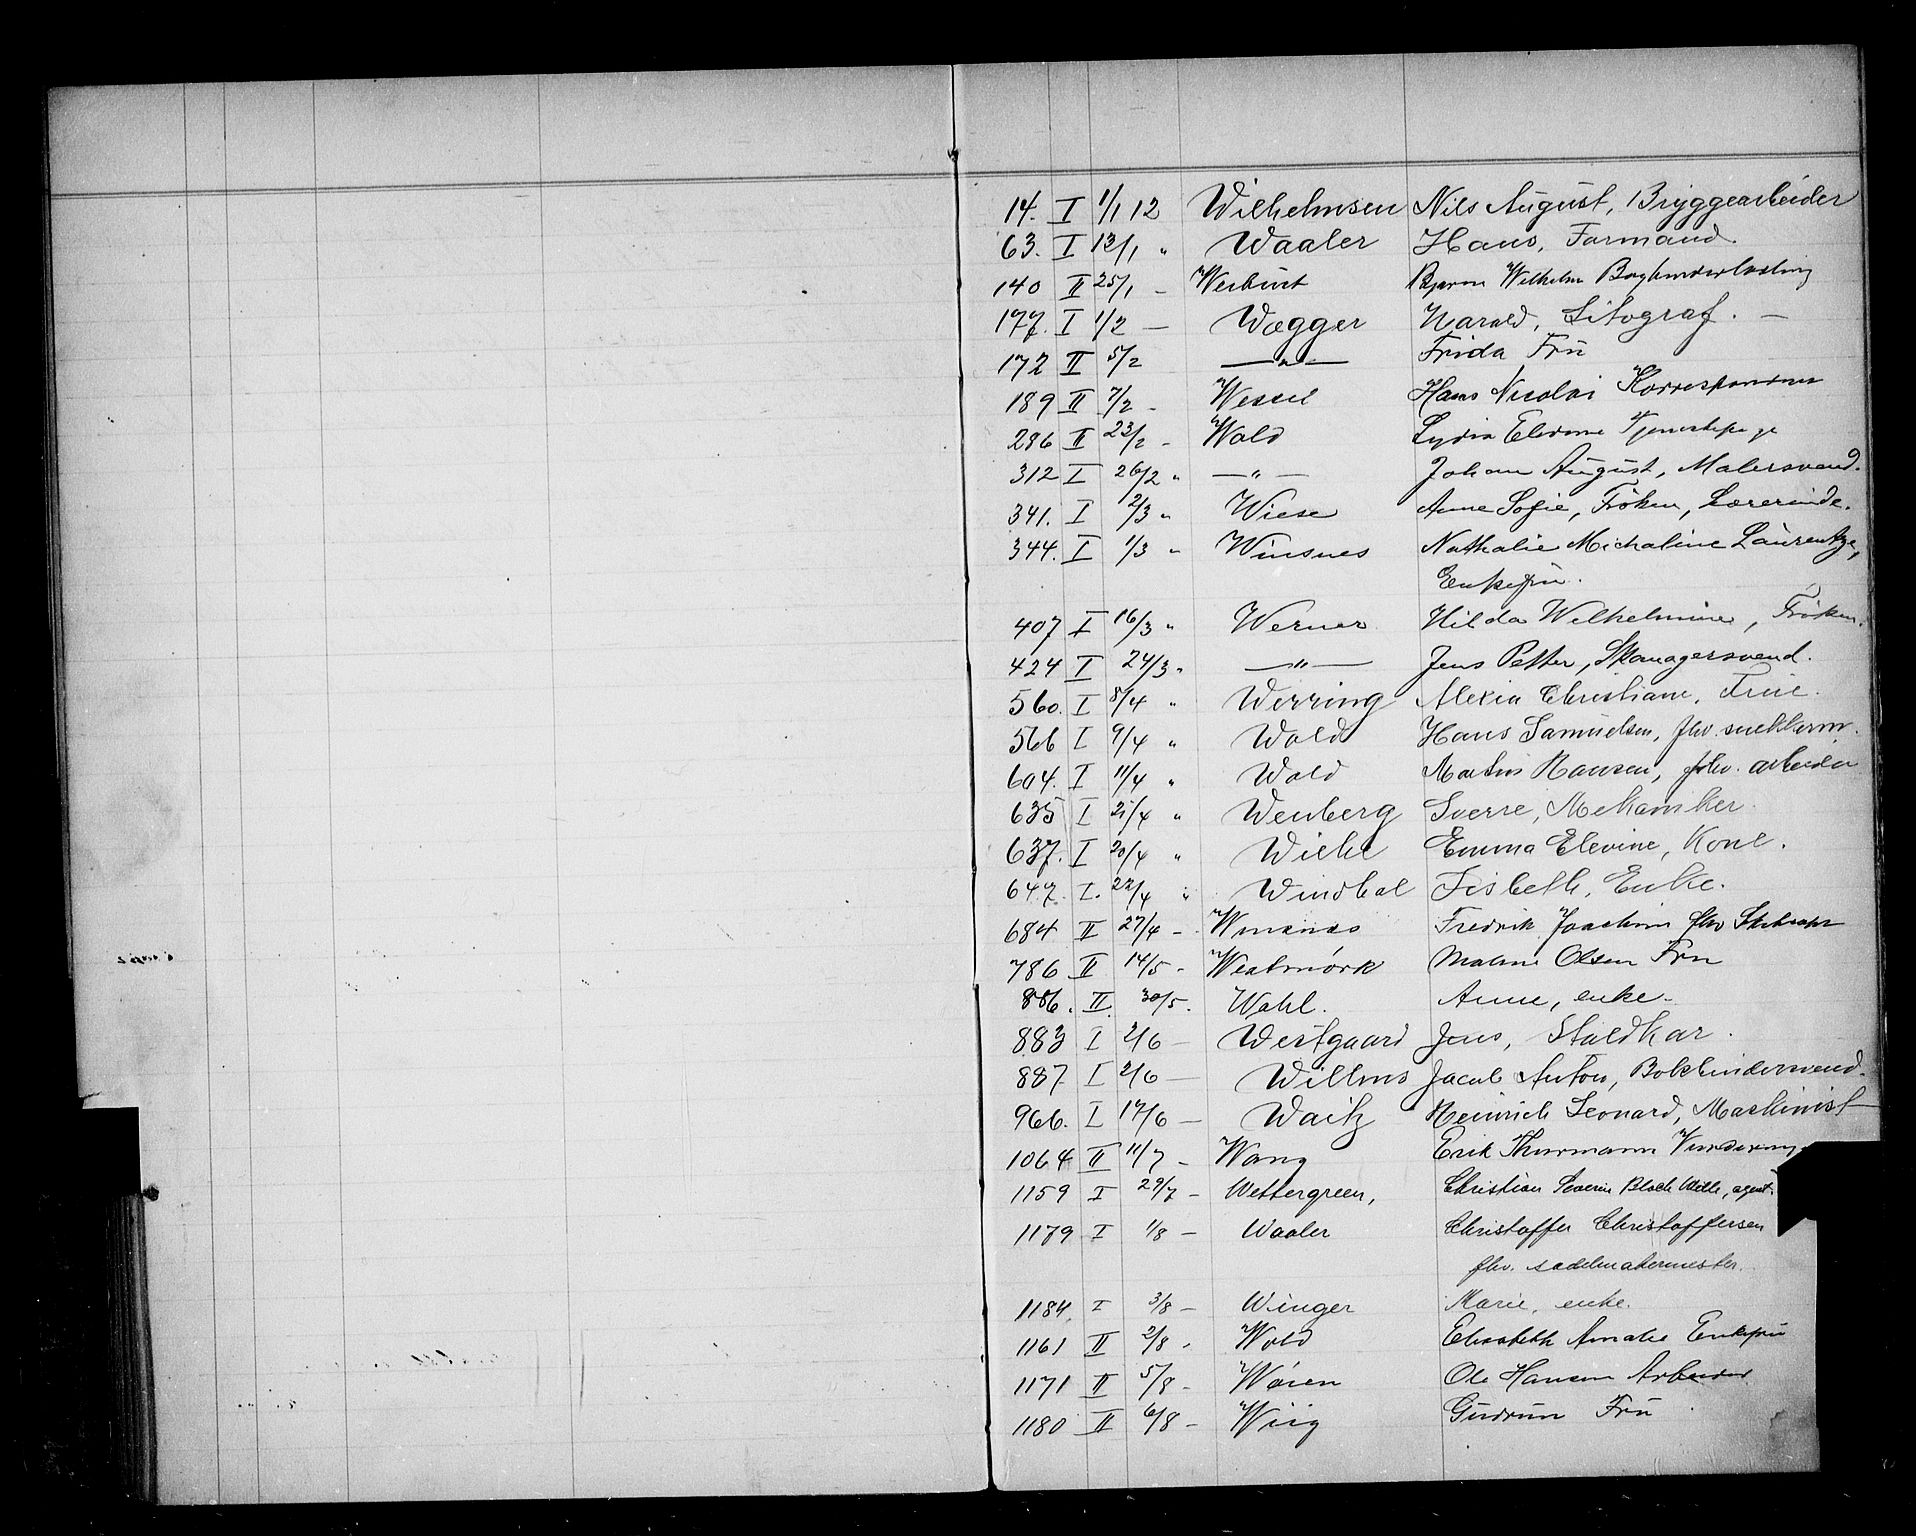 14. I 1/1 12 Wilhelmsen Nils August, Bryggearbeider
63. I 13/1 " Waaler Hans, Formand.
140 II 25/1 - Werbürt Bjarne Wilhelm
177. I 1/2 — Wægger Harald, Litograf. —
172 II 5/2 —"— Frida Frü
189 II 7/2 - Wessel Hans Nicolai
286 II 23/2 - Wold Lydia
312 I 26/2 " —"— Johan August, Malersvend.
341. I 2/3 " Wiese Anne Sofie, Frøken, Lærerinde.
344. I 1/3 " Winsnes Nathalie Michaline Laurentze,
Enkefru.
407 I 16/3 " Werner Hilda Wilhelmine, Frøken.
424 I 24/3 " —"— Jens Petter, Skomagersvend.
560. I 8/4 " Werring Alexia Christiane, Frue.
566 I 9/4 " Wold Hans Samuelsen, fhv. snekkerm.
604. I 11/4 " Wold Martin Hansen, fhv. arbeider
635 I 21/4 " Wenberg Sverre, Mekaniker.
637. I 20/4 " Wiehe Emma Elevine, Kone.
647. I. 22/4 " Windhol Lisbeth, Enke.
684 II 27/4 - Winsnes Fredrik Joachim fhv
786 II 14/5 - Westmørk Malene Olsen Fru
886. II. 30/5. Wahl. Anne, enke.
883 I 2/6 — Westgaard Jens, Staldkar.
887 I 2/6 — Willms Jacob Anton, Bokbindersvend.
966. I 17/6 — Waitz Heinrich Leonard, Maskinist
1064 II 11/7 - Wang Erik Thurmann
1159 I 29/7 - Wettergreen, Christian Severin Block Wille, agent.
1179 I 1/8 — Waaler Christoffer Christoffersen
fhv. sadelmakermester.
1184, I 3/8 — Winger Marie, enke.
1161 II 2/8 - Wold Elisabeth Amalie Enkefrü
1171 II 5/8 - Wøien Ole Hansen Arbeider
1180 II 6/8 - Wiig Gudrün Frü